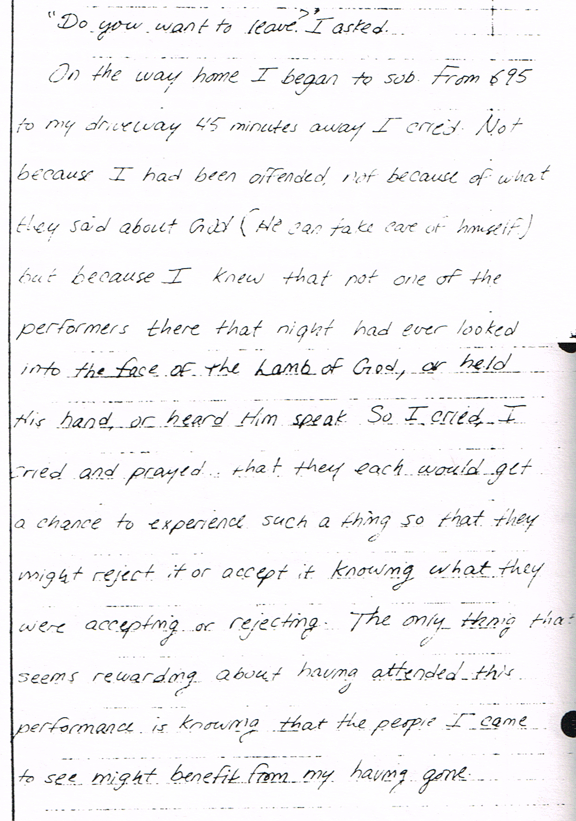 "Do you want to leave?" I asked.
On the way home I began to sob. From 695
to my driveway 45 minutes away I cried. Not
because I had been offended, not because of what
they said about God (He can take care of himself)
but because I knew that not one of the
performers there that night had ever looked
into the face of the Lamb of God, or held
His hand, or heard Him speak. So I cried, I
cried and prayed that they each would get
a chance to experience such a thing so that they
might reject it or accept it knowing what they
were accepting or rejecting. The only thing that
seems rewarding about having attended this
performance is knowing that the people I came
to see might benefit from my having gone.